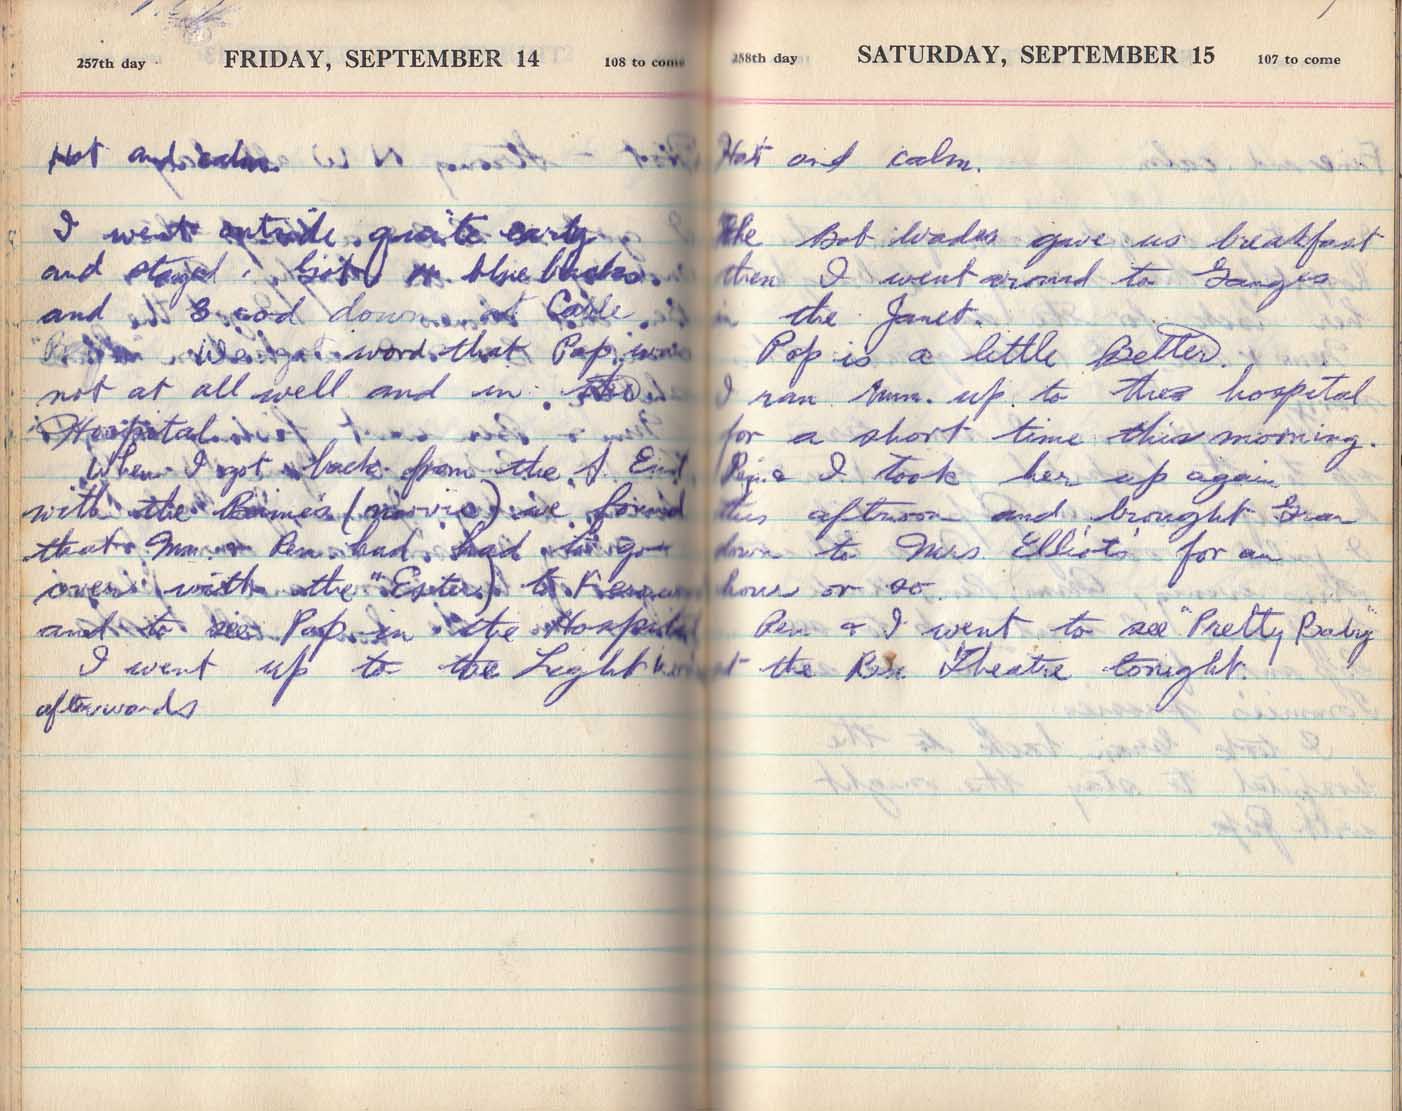 257th day FRIDAY, SEPTEMBER 14 108 to come
Hot and calm.
I went outside quite early
and stayed. Got blue backs.
and 3 cod down at Cable
word that Pop was
not at all well and in the
Hospital.
When I got back from the S. End
with the (movie) we found
that Mum & Pen had had to go
over with the "Ester) to
and to see Pop in the Hospital
I went up to the Light
afterwards
258th day SATURDAY, SEPTEMBER 15 107 to come
Hot and calm.
The Bob Wades gave us breakfast
then I went around to Ganges
in the Janet.
Pop is a little better.
I ran Mum. up to the hospital
for a short time this morning.
Pen & I took her up again
this afternoon and brought Gran
down to Mrs. Elliot's for an
hour or so.
Pen & I went to see "Pretty Baby"
at the Rex Theatre tonight.